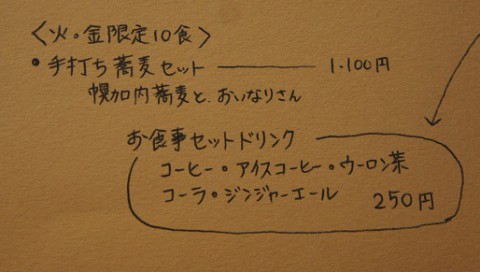 〈火・金限定10食〉
・手打ち蕎麦セット ― 1.100円
幌加内蕎麦と、おいなりさん
お食事セットドリンク
コーヒー・アイスコーヒー・ウーロン茶
コーラ・ジンジャーエール 250円